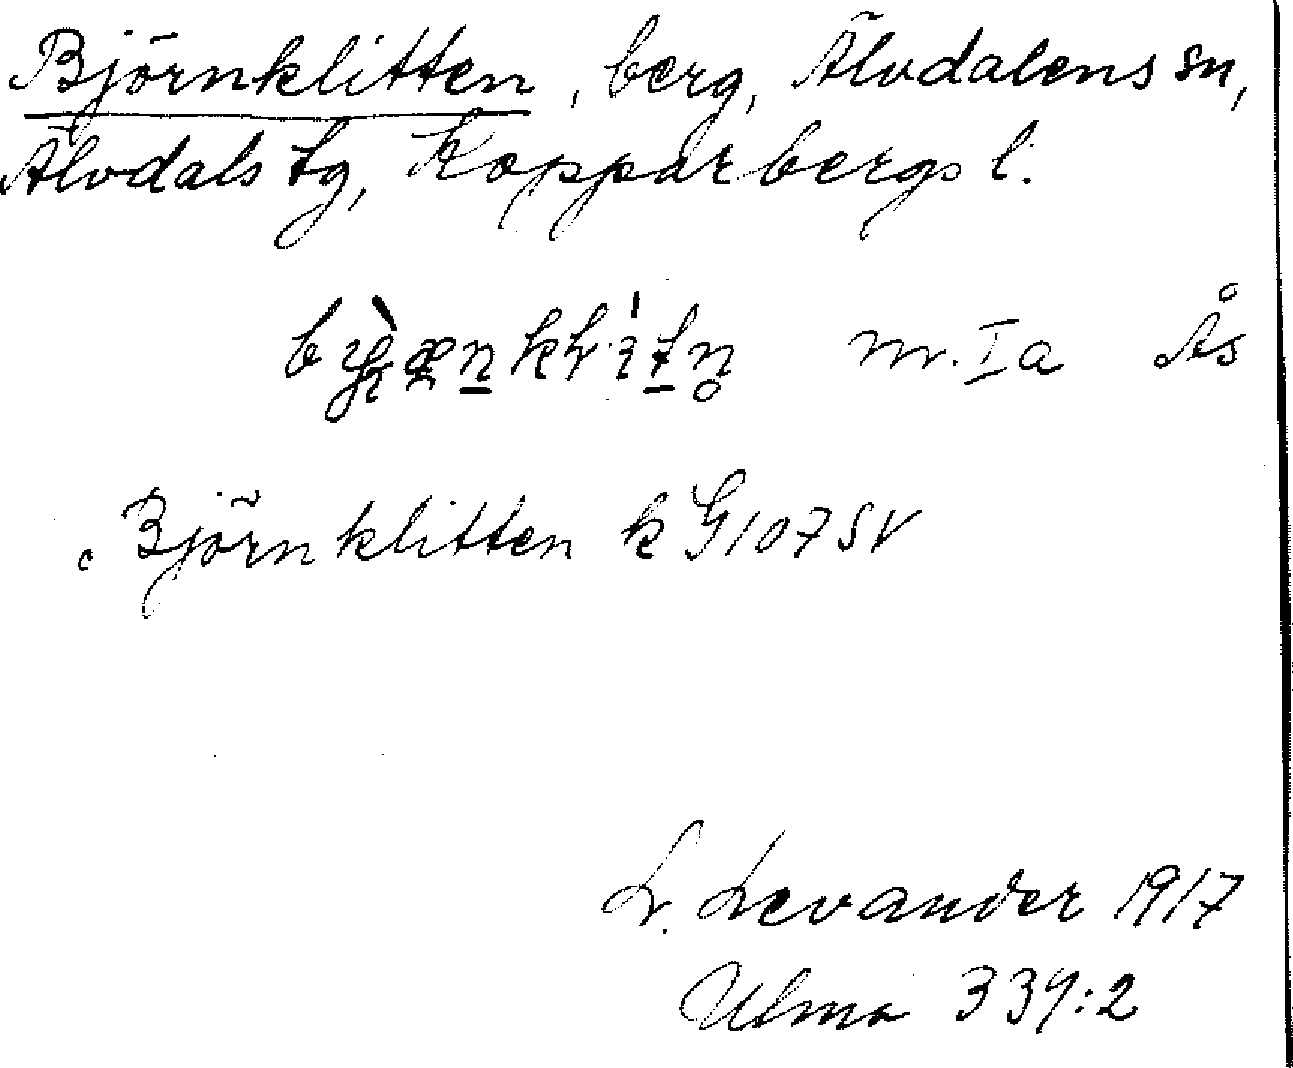 Björnklitten, berg, Älvdalens sn,
Älvdals tg, Kopparbergs l.
nr. Ia Ås
Björnklitten k G107SV
L. Levander 1917
Ulma 339:2